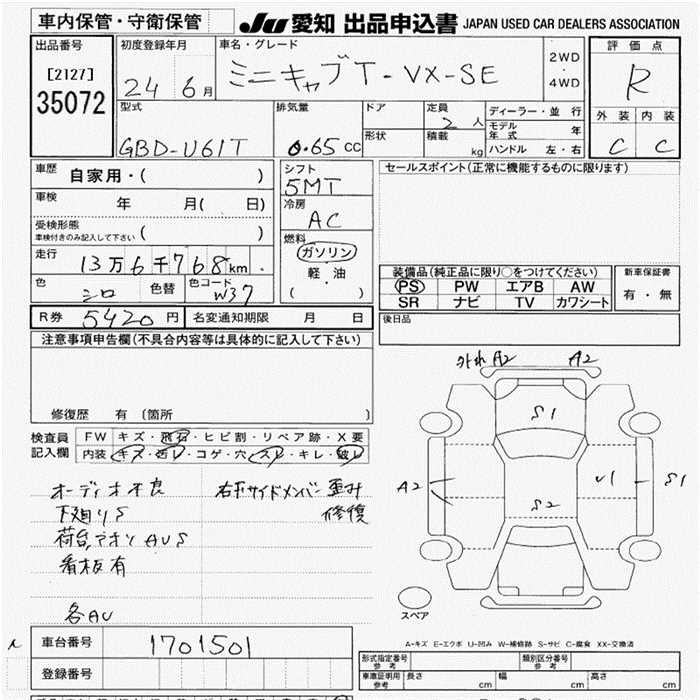 車内保管・守衛保管
JU 愛知 出品申込書 JAPAN USED CAR DEALERS ASSOCIATION
出品番号
[2127]
35072
初度登録年月
24 6月
車名・グレード
ミニキャブT-VX-SE
2WD
・
4WD
評価点
R
外装 内装
C C
型式
GBD-U61T
排気量
0.65 CC
ドア
形状
定員
2 人
積載
kg
ディーラー・並行
モデル年式 年
ハンドル 左・右
車歴
自家用・( )
車検
年 月( 日)
受検形態
車検付きのみ記入して下さい ( )
走行
13万6千768km
色
シロ
色替
色コード
W37
シフト
5MT
冷房
AC
燃料
ガソリン
軽・油
( )
セールスポイント(正常に機能するものに限ります)
装備品(純正品に限り○をつけてください)
PS PW エアB AW
SR ナビ TV カワシート
新車保証書
有・無
R券 5420円 名変通知期限 月 日
後日品
注意事項申告欄(不具合内容等は具体的に記入して下さい)
修復歴 有 (箇所 )
検査員
記入欄
FW キズ・飛石・ヒビ割・リペア跡・X要
内装 キズ・汚レ・コゲ・穴・スレ・キレ・破レ
オーディオ不良
下廻りS
荷台アオリAUS
看板有
各AU
右前サイドメンバー歪み
修復
外れ A2
A2
S1
A2
U1
S1
S2
スペア
A-キズ E-エクボ U-凹み W-補修跡 S-サビ C-腐食 XX-交換済
車台番号
1701501
登録番号
形式指定番号
参考
類別区分番号
参考
車庫証明用
参考
長さ cm
幅 cm
高さ cm